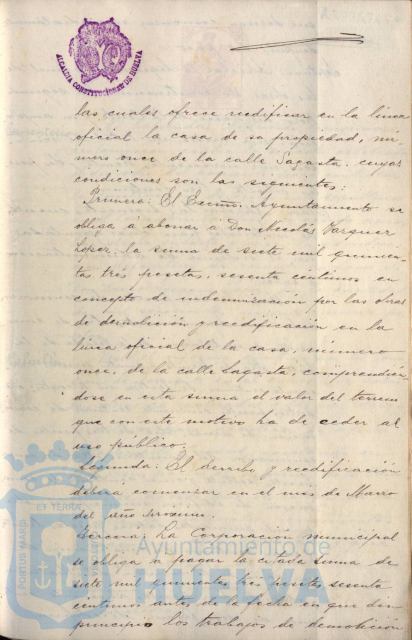 ALCALDIA CONSTITUCIONAL DE HUELVA
las cuales ofrece reedificar en la linea
oficial la casa de su propiedad, nú-
mero once de la calle Sagasta, cuyas
condiciones son las siguientes:
Primera: El Excmo. Ayuntamiento se
obliga á abonar a Don Nicolás Vazquez
Lopez, la suma de siete mil quinien-
tas tres pesetas, sesenta centimos en
concepto de indemnización por las obras
de demolición y reedificación en la
linea oficial de la casa, número
once, de la calle Sagasta, comprendién-
dose en esta suma el valor del terreno
que con este motivo ha de ceder al
uso público.
Segunda: El derribo y reedificación
deberá comenzar en el mes de Marzo
del año próximo.
Tercera: La Corporación municipal
se obliga a pagar la citada suma de
siete mil quinientas tres pesetas sesenta
centimos antes de la fecha en que den
principio los trabajos de demolición
PORTUS MARIS
ET TERRÆ
Ayuntamiento de
HUELVA